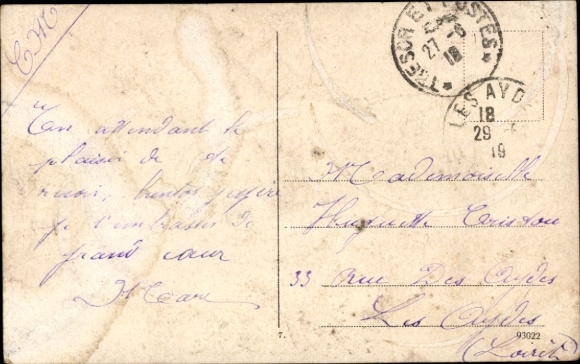 CM
TRESOR ET POSTES
27 -6
18
LES AYD
18
29
19
En attendant le
plaisir de te
revoir, bientôt j'espère
je t'embrasse de
grand cœur
Mademoiselle
Huguette
33 Rue Des Aydes
Les Aydes
(Loiret)
7.
93022